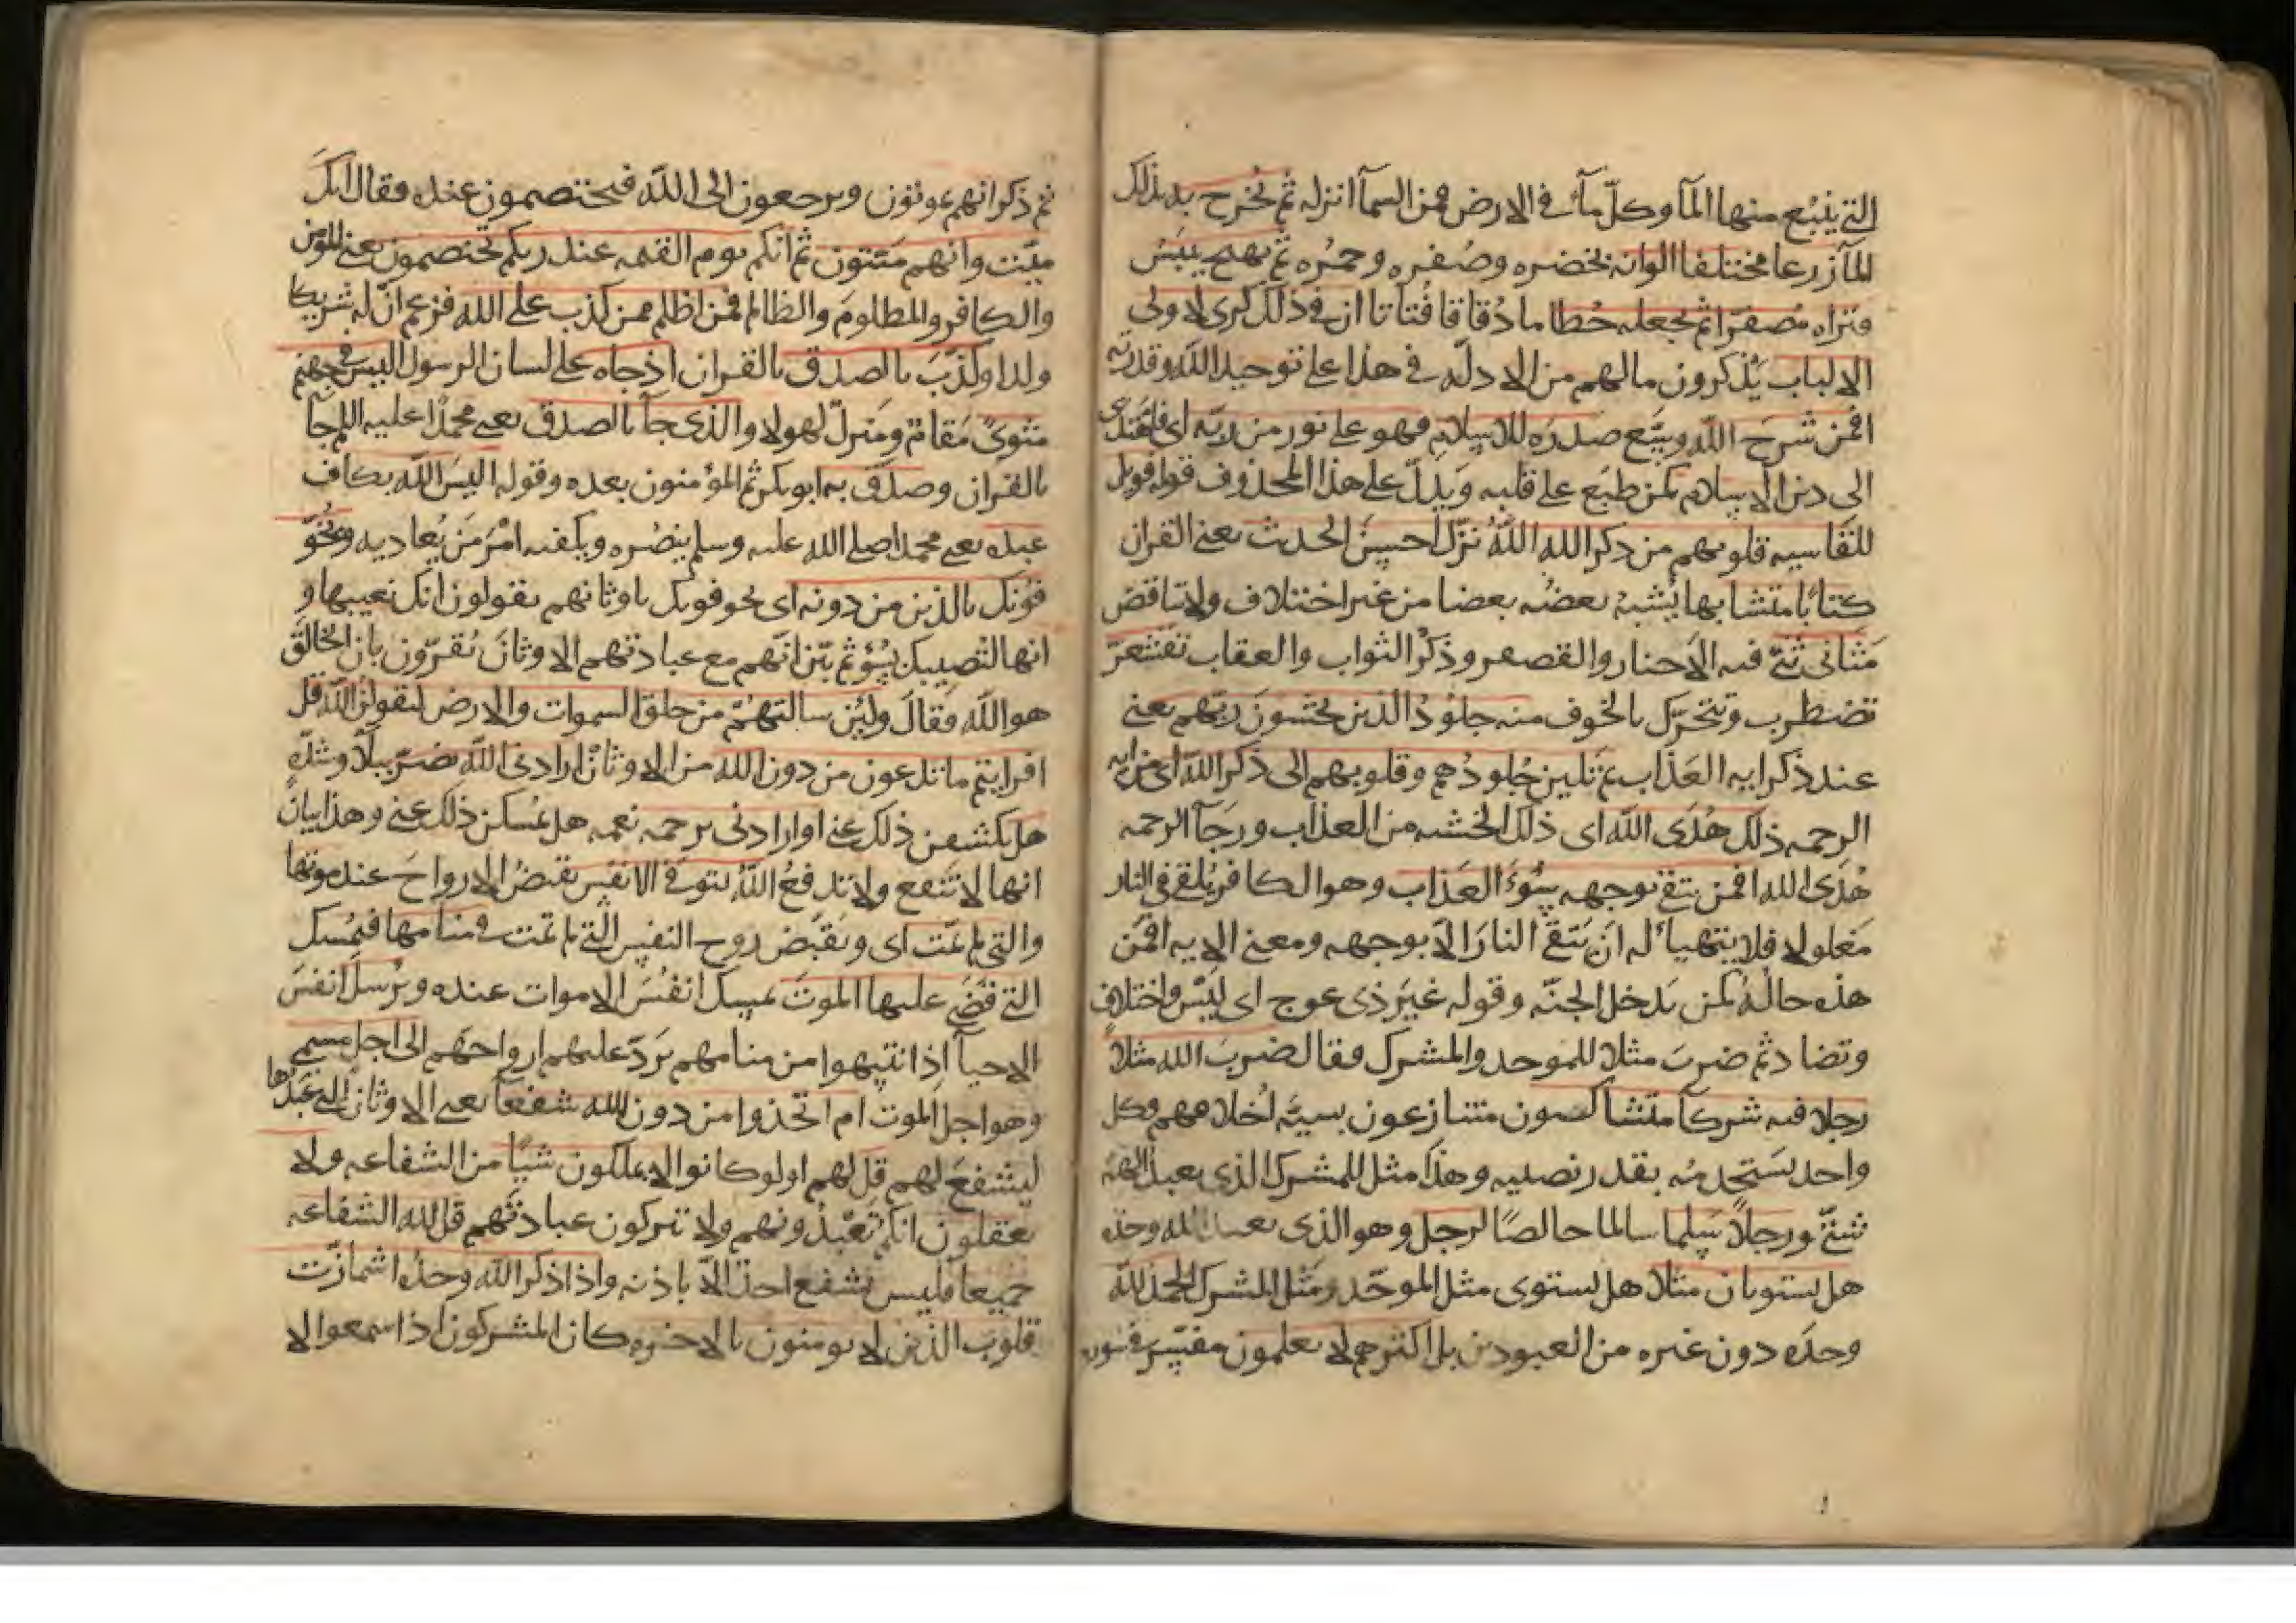 التي ينبع منها المآ وكلّ مآء في الارض فمن السمآ انزله ثم يُخرج به بذلك
المآ زرعا مختلفا الوانه بخضره وصُفره وحمرُه ثم يهيج ييبَسُ
فتراه مُصفرّا ثم يجعله حُطاما دُقاقا فُتاتا ان في ذلك لذكرى لاولى
الالباب يذكرون مالهم من الادله في هذا على توحيد الله وقدرته
افمن شرحَ الله وسّع صدرَه للاسلام فهو على نور من ربّه اى فاهتدى
الى دين الاسلام كمن طبَع على قلبه ويَدلّ على هذا المحذوف قوله فويل
للقاسيه قلوبهم من ذكر الله اللهُ نزّل احسنَ الحديث يعنى القران
كتابًا متشابها يُشبهُ بعضُه بعضا من غير اختلاف ولا تناقض
مَثانى تثنّى فيه الاخبار والقصص وذَكرُ الثواب والعقاب تقشعرّ
تضطرب وتتحرّك بالخوف منه جلوُدُ الذين يخشونَ ربّهم يعنى
عند ذكر ايه العَذاب ثم تلين جُلودُهم وقلوبهم الى ذكر الله اى من ايه
الرحمه ذلك هُدَى الله اى ذلك الخشيه من العذاب ورجآ الرحمه
هُدَى الله افمن يتقى بوجهه سُوءَ العَذاب وهو الكافر يُلقى فى النار
مَغلولا فلا يتهيأ له ان يَتقى النارَ الاّ بوجهه ومعنى الايه افمَن
هذه حالُه كمن يَدخل الجنّه وقوله غيَر ذى عوج اى لَيسَ فيه اختلاف
وتضاد ثم ضربَ مثلا للموحد والمشرك فقال ضربَ الله مثلاً
رجلا فيه شركآ متشاكسون متنازعون بسيّه اخلاقهم وكل
واحد يَستخدمُه بقدر نصيبه وهذَا مثل للمشرك الذى يعبد الهه
شتىّ ورجلاً سَلما سالما خالصًا لرجل وهو الذى يعبد الله وحده
هل يستويان مثلا هل يستوى مثل الموحّد ومَثل المشرك الحمد لله
وحدَه دون غيره من المعبودين بل اكثرهم لا يعلمون
ثم ذكر انهم يموتون ويرجعون الى الله فيختصمون عنده فقال انكَ
ميّت وانهم مَيّتون ثم انكم يوم القيمه عند ربكم تختصمون يعنى المؤمن
والكافر والمظلومَ والظالم فمن اظلم ممن كذب على الله فزعم انّ له شريكا
وولدا وكذّبَ بالصدق بالقران اذ جاه على لسان الرسول اليس فى جهنم
مثوىً مَقامٌ ومَنزلٌ لهولا والذى جآ بالصدق يعنى محمدًا عليه السلم جآ
بالقران وصدّق به ابو بكر ثم المؤمنون بعده وقوله اليسَ الله بكاف
عبده يعنى محمدا صلى الله عليه وسلم ينصُره ويكفيه امْرَ مَن يُعاديه ويخوّ
فونك بالذين من دونه اى يخوفونك باوثانهم يقولون انك تعيبها و
انها لتُصيبك بسُوٓء ثم بيّن انّهم مع عبادتهم الاوثانَ يُقرّون بان الخالق
هو الله فقالَ ولئن سالتهُم من خلق السموات والارض ليقولنّ الله قل
افرايتم ما تدعون من دون الله من الاوثان ان ارادنى الله بضرّ ببلآ وشدّهٍ
هل يكشفن ذلك عنى او ارادنى برحمه نعمه هل يُمسكن ذلك عنى وهذا بيان
انها لا تَنفع ولا تدفعُ اللهُ يتوفى الانفسَ يقبضُ الارواحَ عند موتها
والتى لم تمت اى ويَقبض روح النفس التى لم تمت فى منامها فيُمسك
التى قضَى عليها الموتَ يمسك انفُسَ الاموات عنده ويُرسل انفسَ
الاحيآ اذا انتبهوا من منامهم يَردّ عليهم ارواحَهم الى اجلٍ مسمى
وهو اجل الموت ام اتخذوا من دون الله شفعآ يعنى الاوثان التى عبَدُوها
ليشفعَ لهم قل لهم اولو كانوا لا يملكون شيًا من الشفاعه ولا
يعقلون انكم تَعبُدونهم ولا تتركون عبادتَهم قل لله الشفاعه
جميعا فليس يشفع احدٌ الاّ باذنه واذا ذكر الله وحدُه اشمازّت
قلوبَ الذين لا يومنون بالاخره كان المشركون اذا سمعوا لا